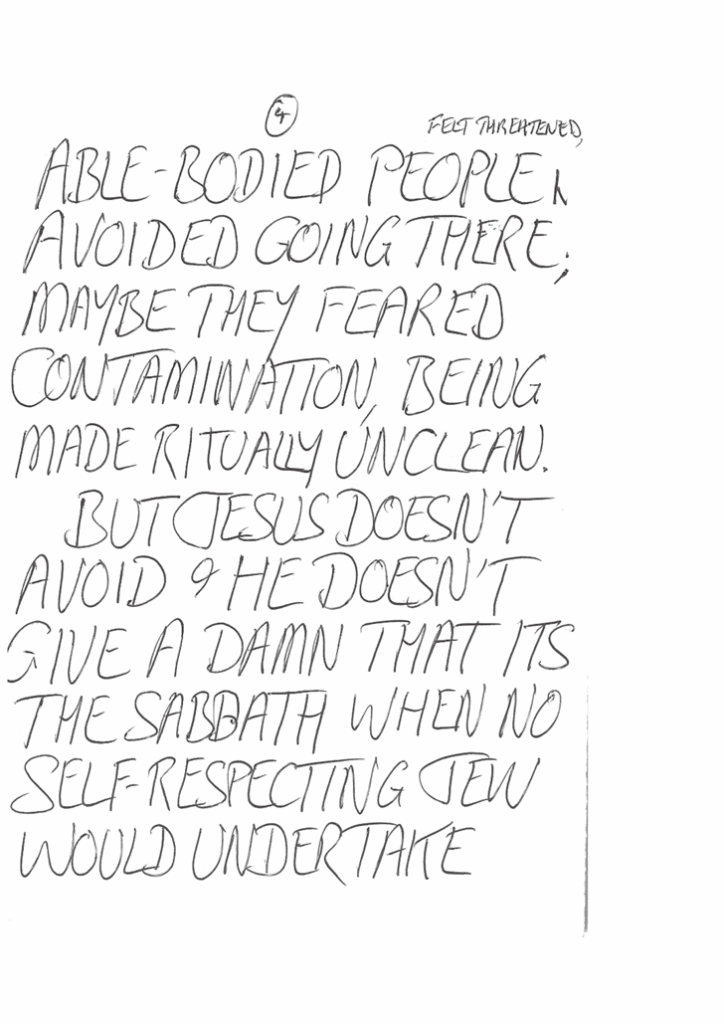 4
FELT THREATENED,
ABLE-BODIED PEOPLE
AVOIDED GOING THERE;
MAYBE THEY FEARED
CONTAMINATION, BEING
MADE RITUALLY UNCLEAN.
BUT JESUS DOESN'T
AVOID & HE DOESN'T
GIVE A DAMN THAT ITS
THE SABBATH WHEN NO
SELF-RESPECTING JEW
WOULD UNDERTAKE